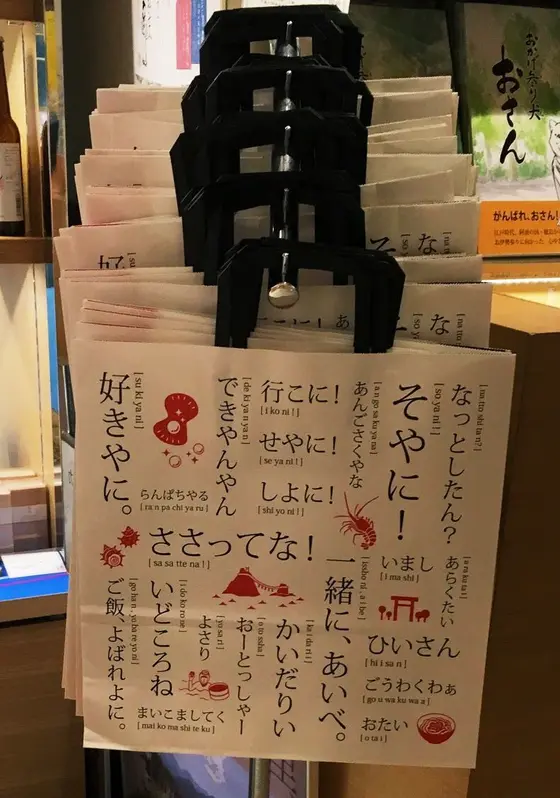 なっとしたん？
[ na tto shi tan? ]
そやに！
[ so ya ni ! ]
あんごさくやな
[ a n go sa ku ya na ]
行こに！
[ i ko ni ! ]
せやに！
[ se ya ni ! ]
しよに！
[ shi yo ni ! ]
できやんやん
[ de ki ya n ya n ]
らんぱちやる
[ ra n pa chi ya ru ]
好きやに。
[ su ki ya ni ]
ささってな！
[ sa sa tte na ! ]
あらくたい
[ a ra ku ta i ]
いまし
[ i ma shi ]
ひいさん
[ hi i sa n ]
ごうわくわぁ
[ go u wa ku wa a ]
おたい
[ o ta i ]
一緒に、あいべ。
[ issho ni , a i be ]
かいだりい
[ ka i da ri i ]
おーとっしゃー
[ o to ssha ]
よさり
[ yo sa ri ]
いどころね
[ i do ko ro ne ]
まいこましてく
[ mai ko ma shi te ku ]
ご飯、よばれよに。
[ go ha n , yo ba re yo ni ]
おかげ祭り犬
おさん
がんばれ、おさん！